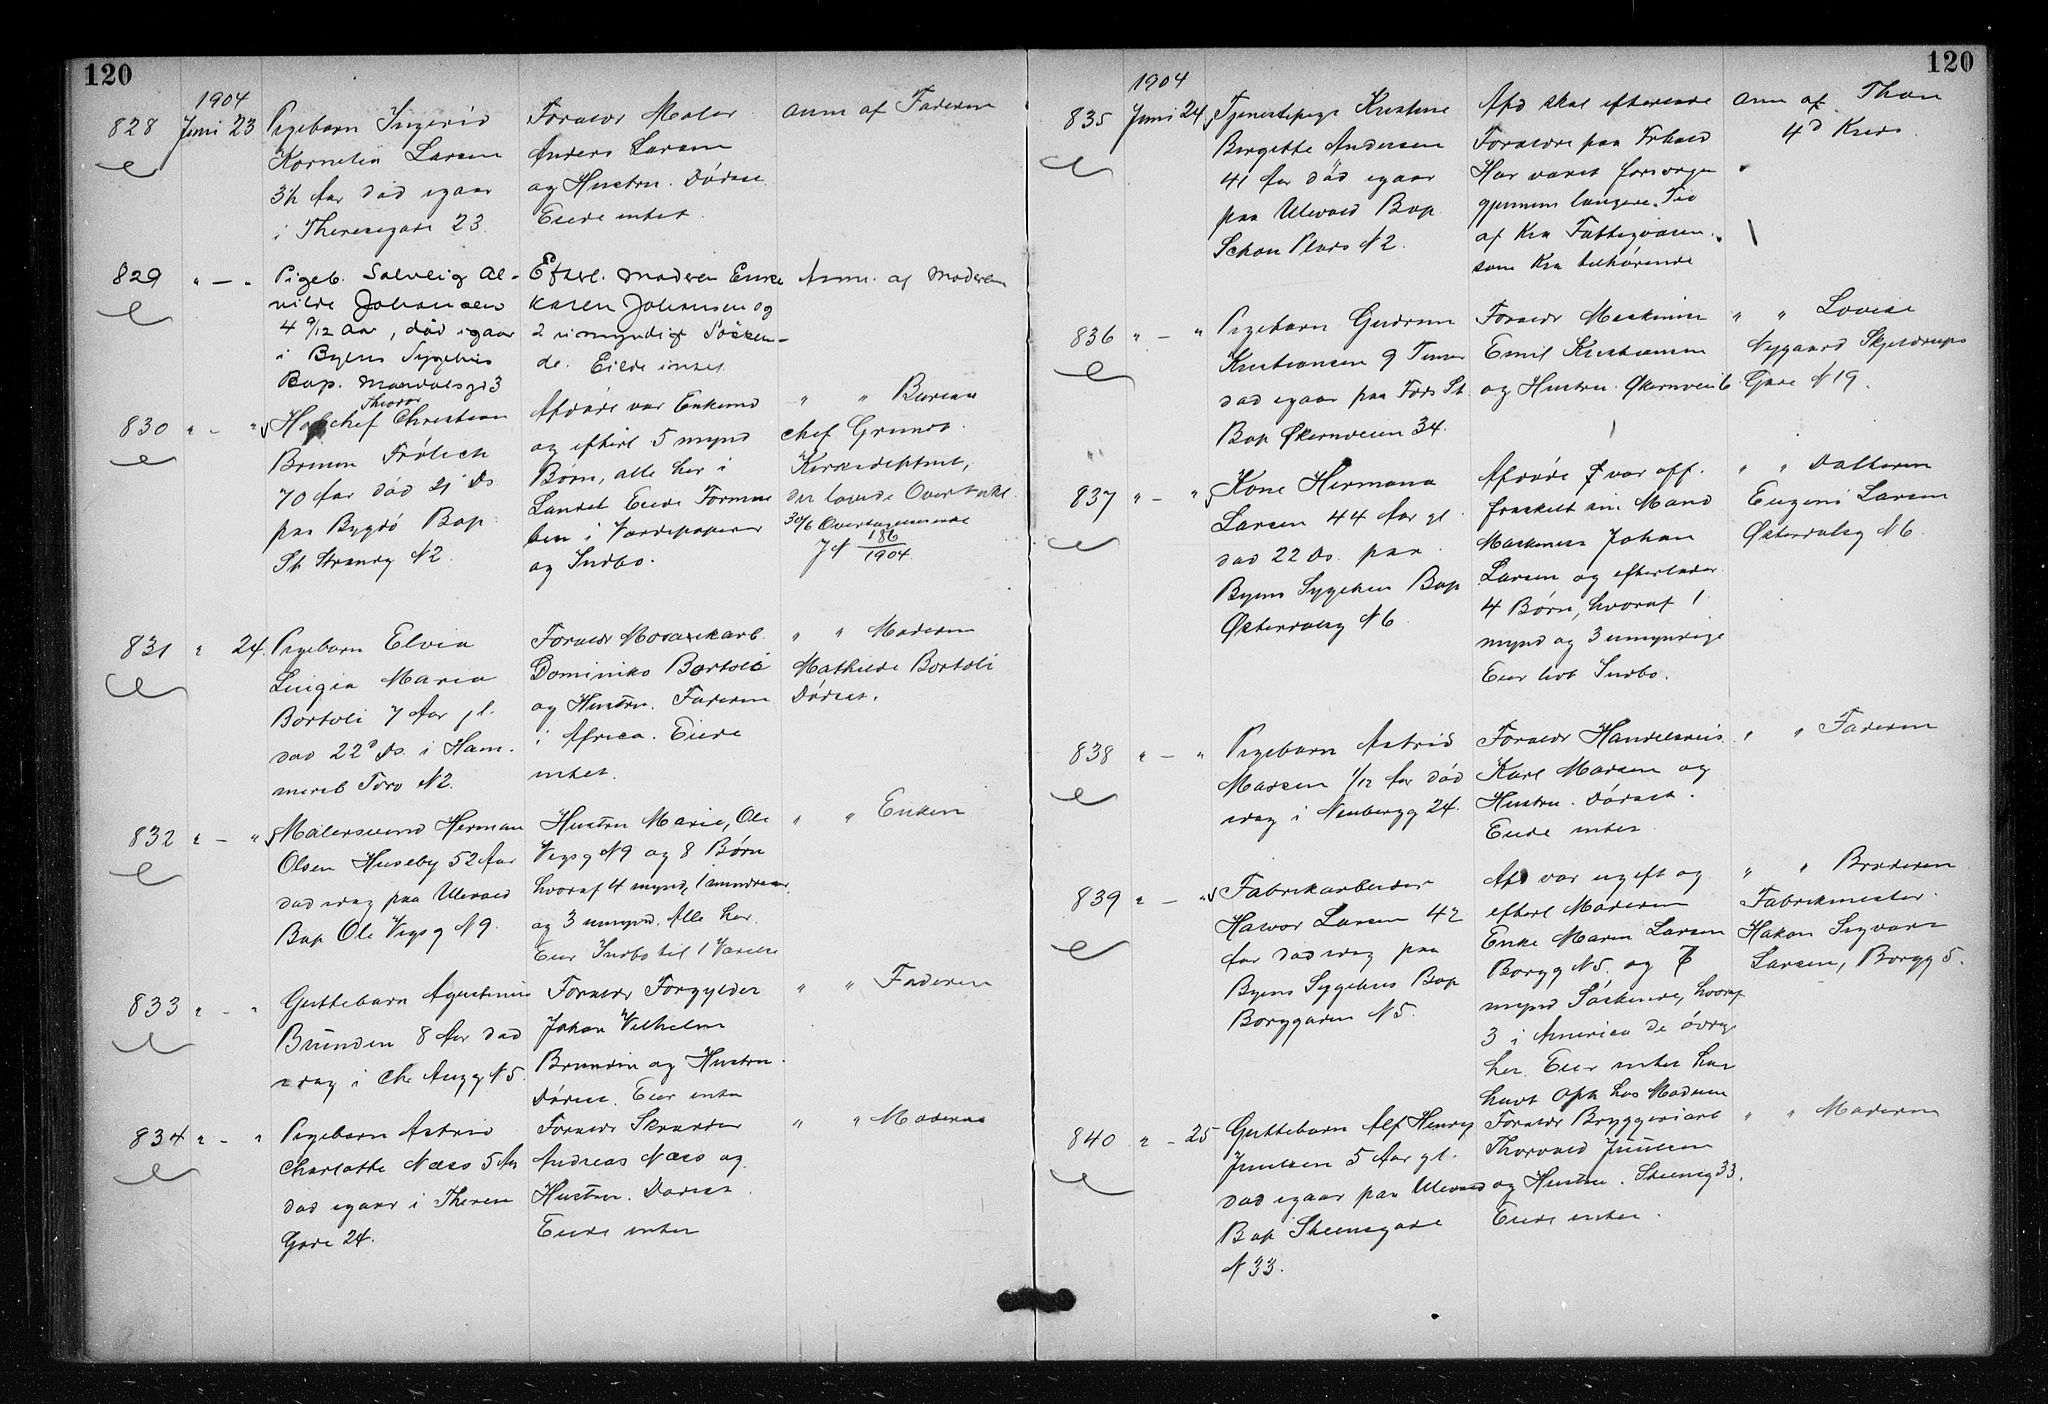 120
1904
828 Juni 23 Pigebarn Ingerid
Kornelia Larsen
3½ Aar død igaar
i Theresegade 23.
Forældr Maler
Anders Larsen
og Hustru. Dødsst.
Eiede intet.
anm af Faderen
829 " — " Pigeb. Solveig Al-
vilde Johansen
4 9/12 Aar, død igaar
i Byens Sygehus
Bop. Mandalsgd 3
Efterl. Moderen Enke
Karen Johansen og
2 umyndige Søsken-
de. Eiede intet.
Anm. af Moderen
830 " — " chef Christian
Theodor
Bruun Frölich
70 Aar død 21 ds
paa Bygdö Bop
St Strandg N2.
Afdøde var Enkemd
og efterl 5 mynd
Børn, alle her i
Landet Eiede Formue
ben i Værdipapirer
og Indbo.
" " Bureau
chef Grundt
Kirkedeptmt,
der lovede Overtakl.
30/6 Overtagende
J N 186/1904
831 " 24. Pigebarn Elvia
Luigia Maria
Bortoli 7 Aar gl.
død 22d ds. i Ham-
mersb Torv N2.
Forældr Mosaikarb.
Dominiko Bortoli
og Hustru. Faderen
i Africa. Eiede
intet.
" " Moderen
Mathilde Bortoli
Dødsst.
832 " — " Malersvend Herman
Olsen Huseby 52 Aar
død idag paa Ulevold
Bop Ole Vigsg N9.
Hustru Marie, Ole
Vigsg N9 og 8 Børn
hvoraf 4 mynd, 1 mindreaar
og 3 umynd. Alle her.
Eier Indbo til 1 Værelse
" " Enken
833 " - " Guttebarn Agustinus
Brunden 8 Aar død
idag i Chr Augg N5.
Forældr Forgylder
Johan Vilhelm
Brundin og Hustru.
Dødsst. Eier intet
" " Faderen
834 " - " Pigebarn Astrid
Charlotte Næss 5 Aar
død igaar i Therese
Gade 24.
Forældr Skrædder
Andreas Næss og
Hustru. Dødsst.
Eiede intet
" " Moderen
120
1904
835 Juni 24 Tjenestepige Kristine
Birgitte Andersen
41 Aar død igaar
paa Ulevold Bop
Schou Plads N2.
Afd skal efterlade
Forældre paa
Har været forsørge
gjennem længere Tid
af Kra Fattigvæsen.
som Kra tilhørende
anm af Thon
4d Kreds
836 " — " Pigebarn Gudrun
Kristiansen 9 Timer
død igaar paa Føds St
Bop Økernveien 34.
Forældr Maskinist
Emil Kristiansen
og Hustru. Økernvei
" " Lovise
Nygaard Skjeldrups
Gade N19.
837 " — " Kone Hermana
Larsen 44 Aar gl.
død 22 ds. paa
Byens Sygehus Bop
Østerdalsg N6
Afdøde var off.
fraskilt sin Mand
Maskinist Johan
Larsen og efterlader
4 Børn, hvoraf 1
mynd og 3 umyndige
Eier lidt Indbo.
" " Datteren
Eugeni Larsen
Østerdalsg N6.
838 " — " Pigebarn Astrid
Marsen 1/12 Aar død
idag i Neubergg 24.
Forældr Handelsreis.
Karl Marsen og
Hustru. Dødsst.
Eiede intet
" " Faderen
839 " — " Fabrikarbeider
Hawor Larsen 42
Aar død idag paa
Byens Sygehus Bop
Borggaden N5.
Afd var ugift og
efterl Moderen
Enke Maren Larsen
Borgg N5. og 7
mynd Søskende, hvoraf
3 i America de øvrige
her. Eier intet har
havt Oph hos Moderen
" " Broderen
Fabrikmester
Hakon Sigvard
Larsen, Borgg 5.
840 " - 25 Guttebarn Alf Henry
Juulsen 5 Aar gl.
død igaar paa Ulevold
Bop Steensgade
N 33.
Forældr Bryggeriarb
Thorvald Juulsen
og Hustru. Steensg 33.
Eiede intet.
" " Moderen